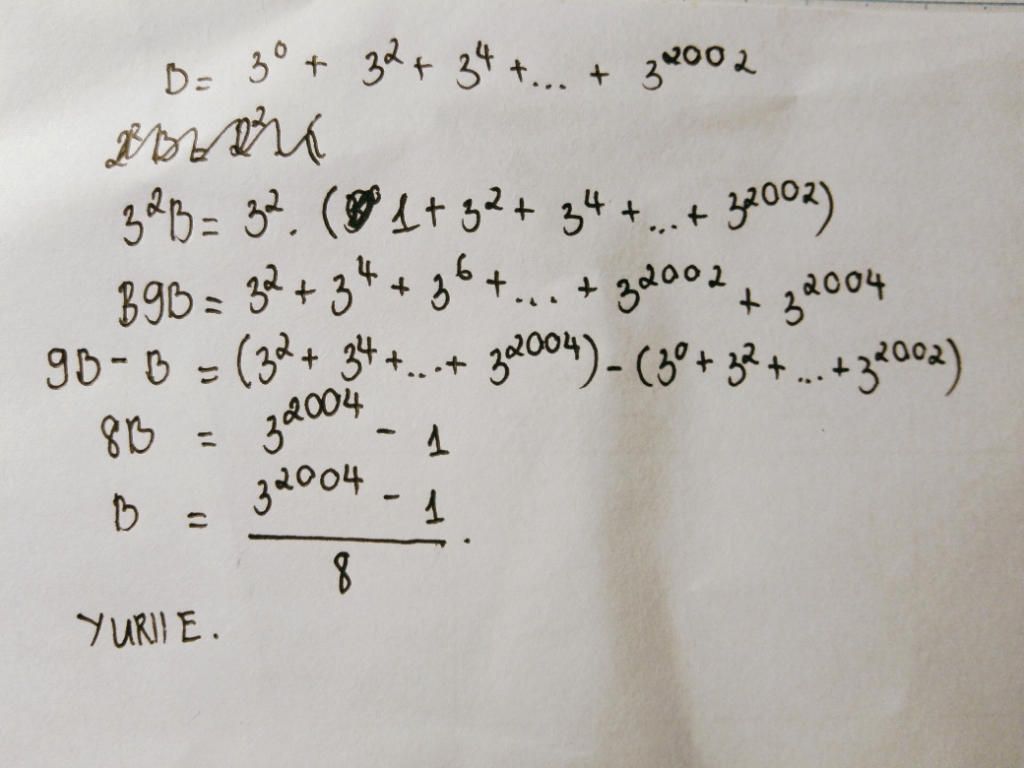 B = 3⁰ + 3² + 3⁴ + ... + 3²⁰⁰²
3²B = 3² . ( 1 + 3² + 3⁴ + ... + 3²⁰⁰²)
B9B = 3² + 3⁴ + 3⁶ + ... + 3²⁰⁰² + 3²⁰⁰⁴
9B - B = (3² + 3⁴ + ... + 3²⁰⁰⁴) - (3⁰ + 3² + ... + 3²⁰⁰²)
8B = 3²⁰⁰⁴ - 1
B = 3²⁰⁰⁴ - 1
8 .
YURIIE.